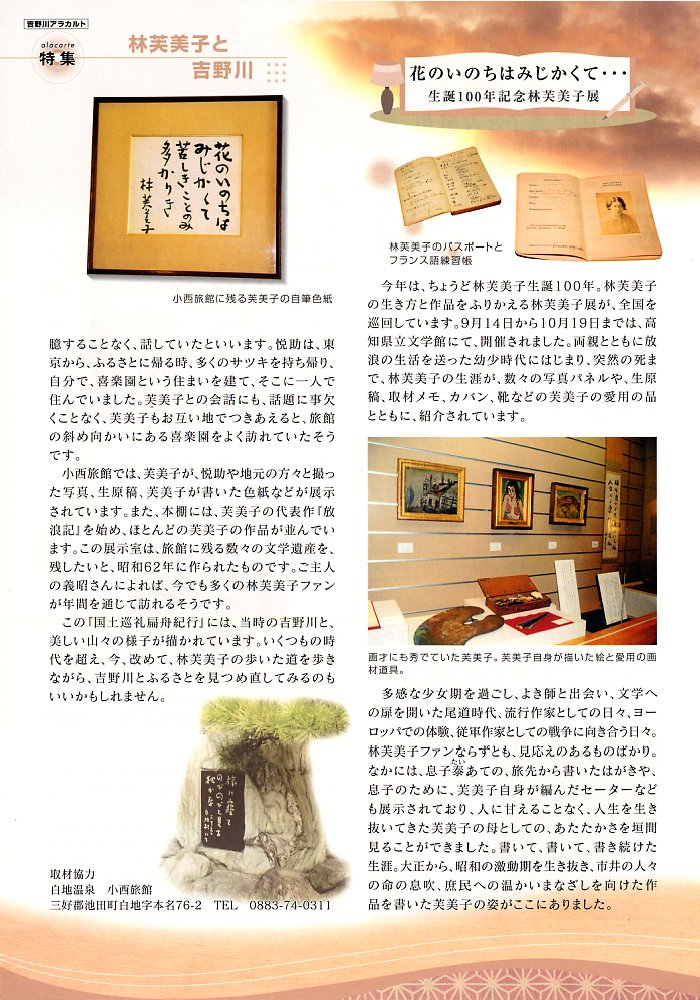 吉野川アラカルト
alacarte
特集
林芙美子と
吉野川
花のいのちは
みじかくて
苦しきことのみ
多かりき
林芙美子
小西旅館に残る芙美子の自筆色紙
臆することなく、話していたといいます。悦助は、東
京から、ふるさとに帰る時、多くのサツキを持ち帰り、
自分で、喜楽園という住まいを建て、そこに一人で
住んでいました。芙美子との会話にも、話題に事欠
くことなく、芙美子もお互い地でつきあえると、旅館
の斜め向かいにある喜楽園をよく訪れていたそう
です。
　小西旅館では、芙美子が、悦助や地元の方々と撮っ
た写真、生原稿、芙美子が書いた色紙などが展示
されています。また、本棚には、芙美子の代表作『放
浪記』を始め、ほとんどの芙美子の作品が並んでい
ます。この展示室は、旅館に残る数々の文学遺産を、
残したいと、昭和62年に作られたものです。ご主人
の義昭さんによれば、今でも多くの林芙美子ファン
が年間を通じて訪れるそうです。
　この『国土巡礼扁舟紀行』には、当時の吉野川と、
美しい山々の様子が描かれています。いくつもの時
代を超え、今、改めて、林芙美子の歩いた道を歩き
ながら、吉野川とふるさとを見つめ直してみるのも
いいかもしれません。
旅に寝て
のびのびと見る
枕かな
取材協力
白地温泉　小西旅館
三好郡池田町白地字本名76-2　TEL　0883-74-0311
花のいのちはみじかくて・・・
生誕100年記念林芙美子展
林芙美子のパスポートと
フランス語練習帳
　今年は、ちょうど林芙美子生誕100年。林芙美子
の生き方と作品をふりかえる林芙美子展が、全国を
巡回しています。9月14日から10月19日までは、高
知県立文学館にて、開催されました。両親とともに放
浪の生活を送った幼少時代にはじまり、突然の死ま
で、林芙美子の生涯が、数々の写真パネルや、生原
稿、取材メモ、カバン、靴などの芙美子の愛用の品
とともに、紹介されています。
画才にも秀でていた芙美子。芙美子自身が描いた絵と愛用の画
材道具。
　多感な少女期を過ごし、よき師と出会い、文学へ
の扉を開いた尾道時代、流行作家としての日々、ヨー
ロッパでの体験、従軍作家としての戦争に向き合う日々。
林芙美子ファンならずとも、見応えのあるものばかり。
たい
なかには、息子泰あての、旅先から書いたはがきや、
息子のために、芙美子自身が編んだセーターなど
も展示されており、人に甘えることなく、人生を生き
抜いてきた芙美子の母としての、あたたかさを垣間
見ることができました。書いて、書いて、書き続けた
生涯。大正から、昭和の激動期を生き抜き、市井の人々
の命の息吹、庶民への温かいまなざしを向けた作
品を書いた芙美子の姿がここにありました。